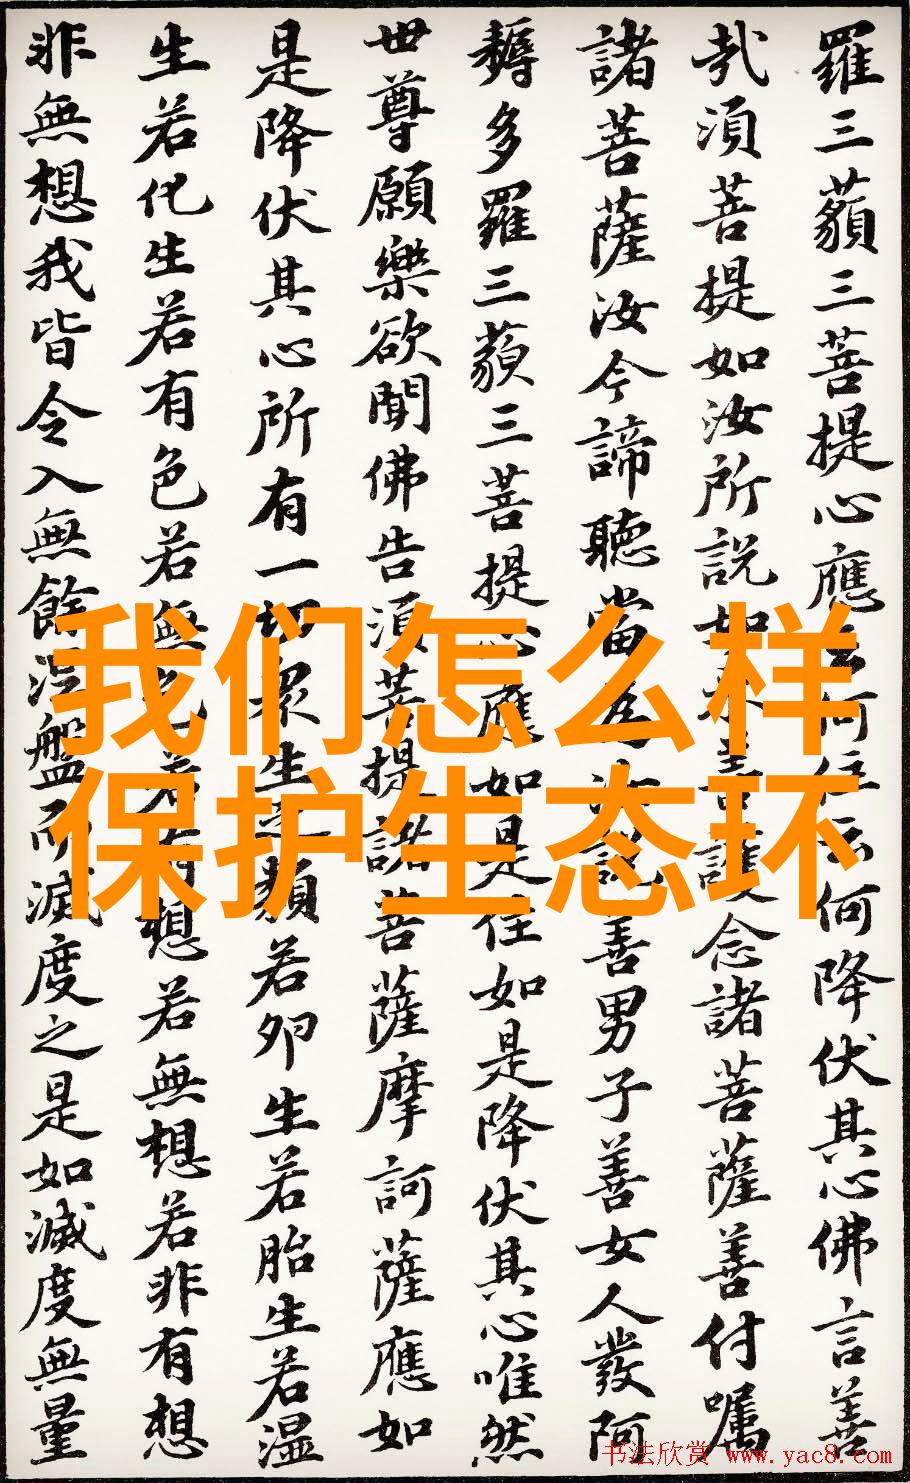 羅三藐三菩提心應云何住云何降伏其心佛言善
哉須菩提如汝所説如來善護念諸菩薩善付囑
諸菩薩汝今諦聽當為汝説善男子善女人發阿
耨多羅三藐三菩提心應如是住如是降伏其心唯然
世尊願樂欲聞佛告須菩提諸菩薩摩訶薩應如
是降伏其心所有一切眾生之類若卵生若胎生若湿
生若化生若有色若無色若有想若無想若非有想
非無想我皆令入無餘涅盤而滅度之是如滅度無量
我们怎么样
保护生态环
书法欣赏 www.yac8.com